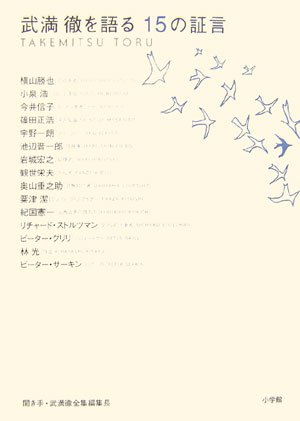 武満 徹を語る 15の証言
TAKEMITSU TORU
横山勝也
小泉 浩
今井信子
篠田正浩
宇野一朗
池辺晋一郎
岩城宏之
観世栄夫
奥山重之助
粟津 潔
紀国憲一
リチャード・ストルツマン
ピーター・グリリ
林 光
ピーター・サーキン
聞き手・武満徹全集編集長
小学館